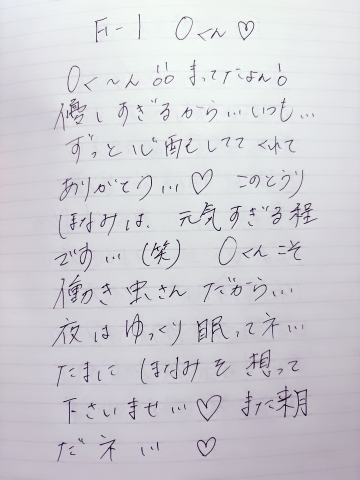 F-1 Oくん♡
Oく〜ん!!!! まってたよん!
優しすぎるから… いつも…
ずっと心配してて くれて
ありがとう…♡ このとうり
ほなみは、元気すぎる程
です…(笑) Oくんこそ
働き虫さん だから…
夜はゆっくり眠ってネ…
たまに ほなみを 想って
下さいませ…♡ また来月
だネ…♡